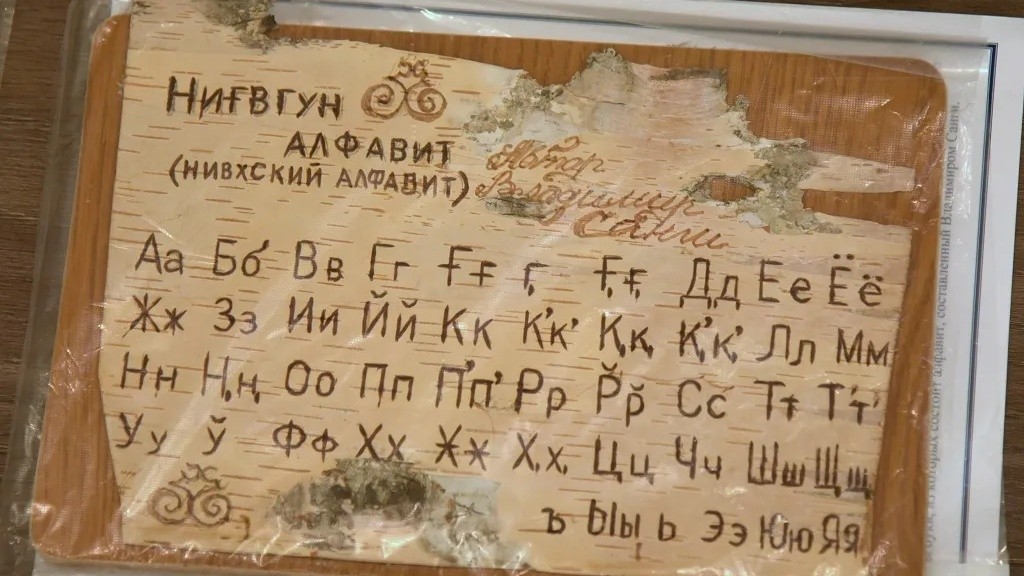 НИҒВГУН
АЛФАВИТ
(НИВХСКИЙ АЛФАВИТ)
Автор
Владимир
Санги
Аа Бб Вв Гг Ғғ Ӷ Ӻӻ Дд Ее Ёё
Жж Зз Ии Йй Кк К'к' Ққ Қ'қ' Лл Мм
Нн Ңң Оо Пп П'п' Рр Р̆р̆ Сс Тт Т'т'
Уу ў Фф Хх Ӿӿ Ҳҳ Цц Чч Шш Щщ
ъ Ыы ь Ээ Юю Яя
алфавит, составленный Владимиром Санги.